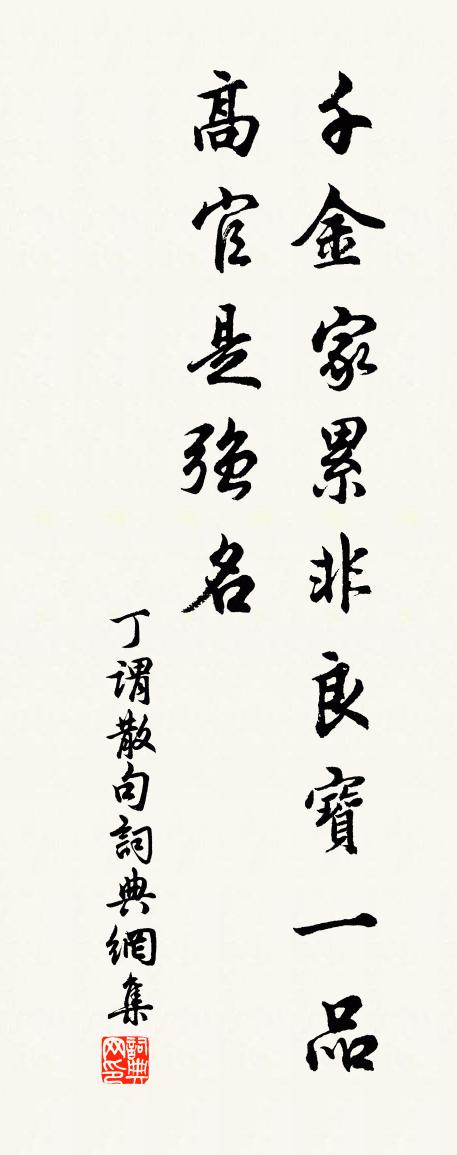 千金家累非良寶一品
高官是強名
丁謂散句詞典網集
詞典网印